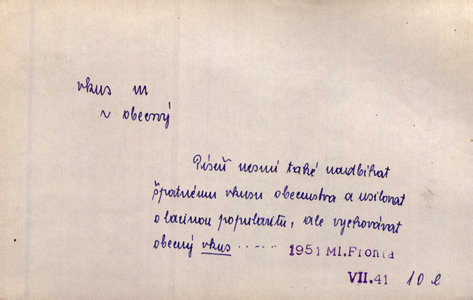 vkus m
~ obecný
Píseň nesmí také nadbíhat
špatnému vkusu obecenstva a usilovat
o lacinou popularitu, ale vychovávat
obecný vkus .....
1951 Ml. Fronta
VII. 41 10 l